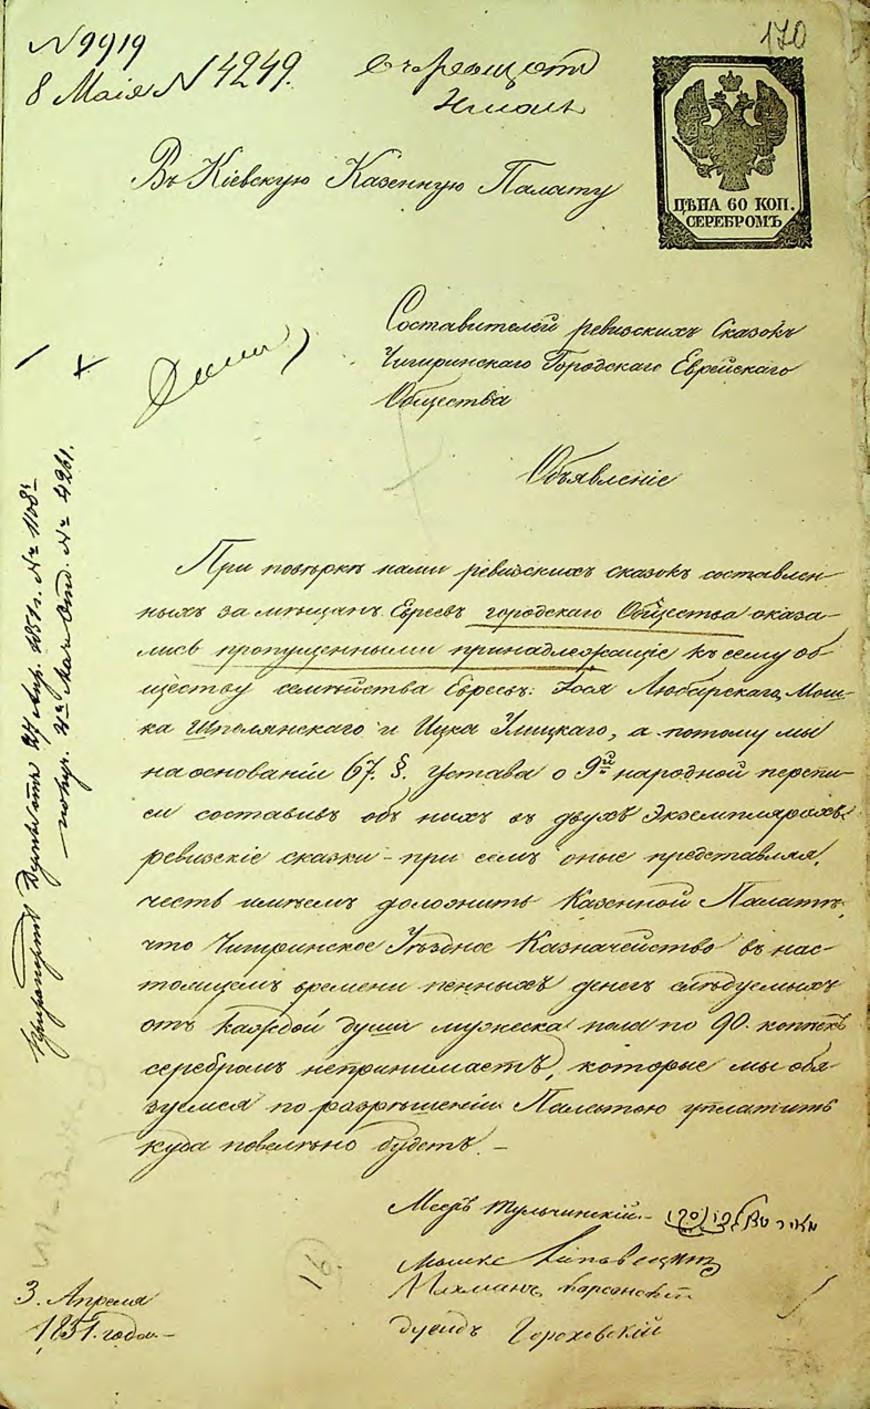 170
N 9919
8 Маія N 4249.
ЦѢНА 60 КОП.
СЕРЕБРОМЪ
Въ Кіевскую Казенную Палату
Составителей ревизскихъ Сказокъ
Чигиринскаго Городскаго Еврейскаго
Общества
Объявленіе
При повѣркѣ нами ревизскихъ сказокъ составлен-
ныхъ за мѣщанъ Евреевъ городскаго Общества оказа-
лись пропущенными принадлежащіе къ сему об-
ществу семейства Евреевъ: Іося Любарскаго, Мош-
ка Шполянскаго и Ицка Улицкаго, а потому мы
на основаніи 67. §. Устава о 9й народной перепи-
си составивъ объ нихъ въ двухъ Экземплярахъ
ревизскіе сказки - при семъ оные представляя,
честь имѣемъ доложить Казенной Палатѣ,
что Чигиринское Уѣздное Казначейство въ нас-
тоящемъ времени пенныхъ денегъ слѣдуемыхъ
отъ каждой души мужеска пола по 90. копѣекъ
серебромъ непринимаетъ, которые мы обя-
зуемся по разрѣшеніи Палатою уплатить
куда повелѣно будетъ. -
Мееръ Тульчинскій -
Мошко Липовецкій
Нахманъ Корсонскій
Дувидъ Гороховскій
16.
3. Апреля
1851. года -
27 Апр. 1851 г. № 1108
№ 4261.